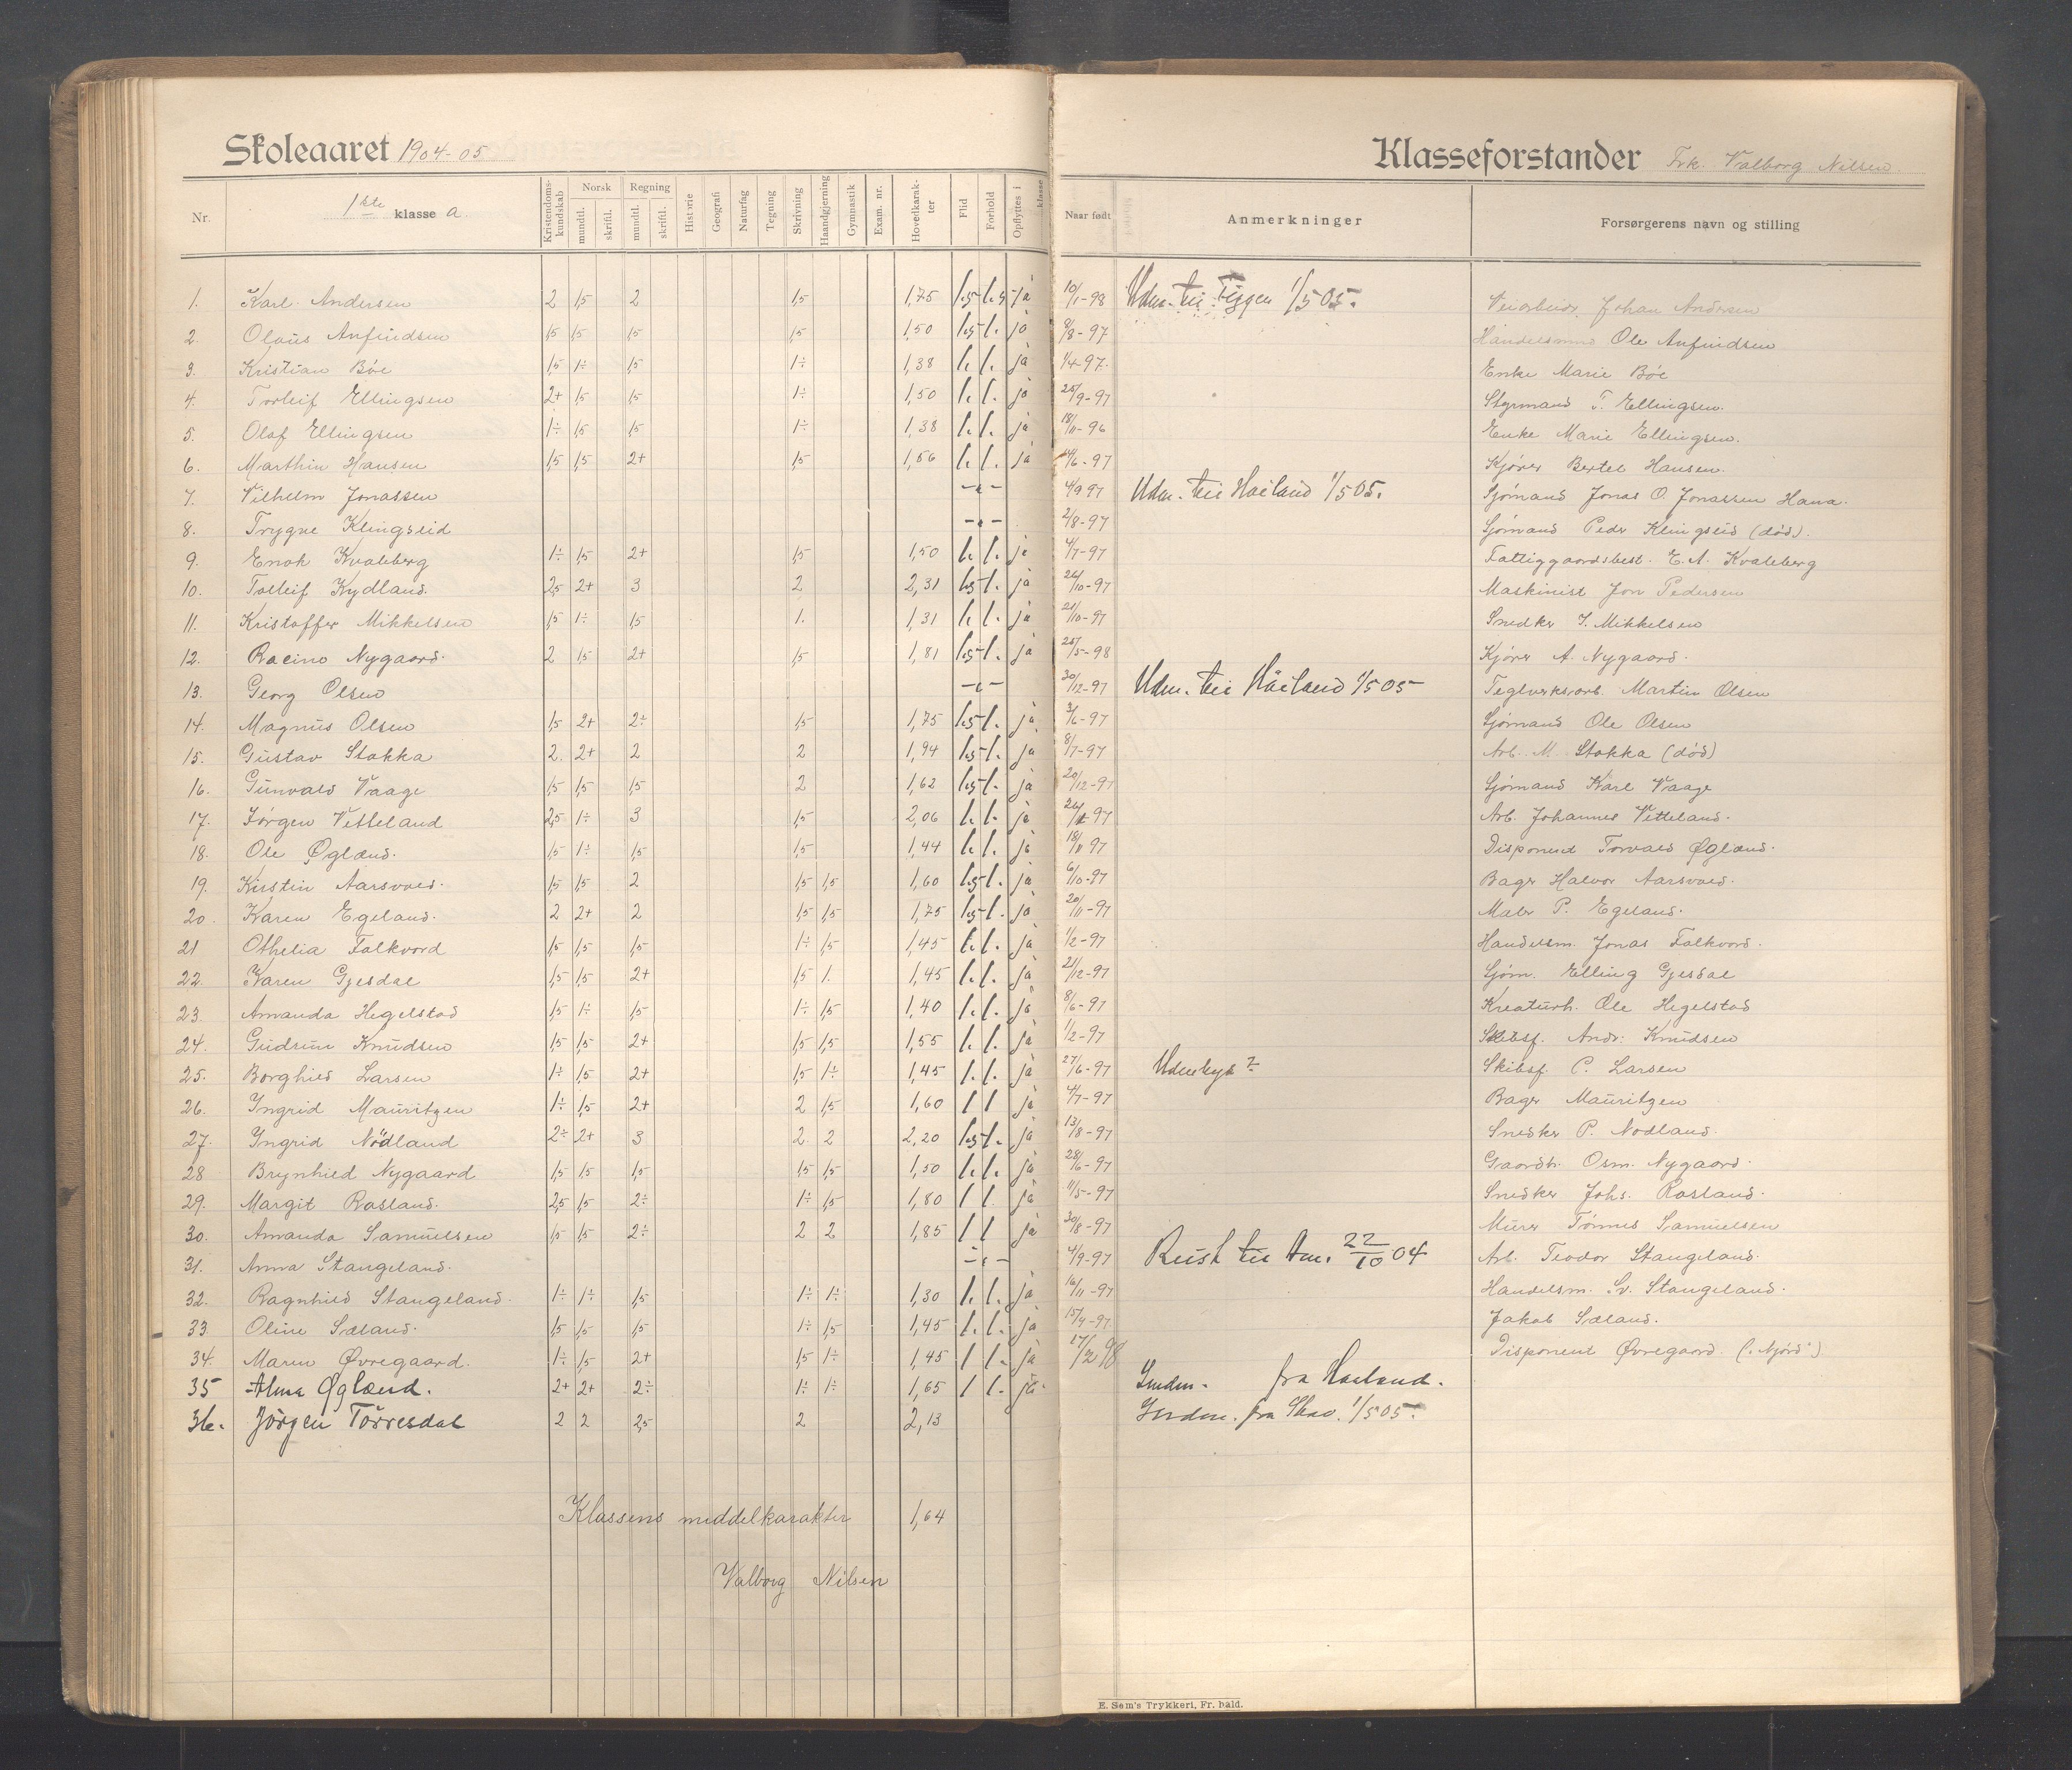 Skoleaaret 1904-05
Klasseforstander Frk. Valborg Nilsen.
Nr. 1ste klasse a. Kristendomskundskab Norsk mundtl. skriftl. Regning mundtl. skriftl. Historie Geografi Naturfag Tegning Skrivning Haandgjerning Gymnastik Exam. nr. Hovedkarakter Flid Forhold Opflyttes i klasse Naar født Anmerkninger Forsørgerens navn og stilling
1. Karl Andersen 2 1,5 2 1,5 1,75 1.5 1.5 ja 10/1-98 Udm. til 1/5 05. Johan Andersen
2. Olaus Anfindsen 1,5 1,5 1,5 1,5 1,50 1.5 1. ja 8/8-97 Handelsmand Ole Anfindsen
3. Kristian Bøe 1,5 1÷ 1,5 1÷ 1,38 1. 1. ja 1/4 97. Enke Marie Bøe
4. Torleif Ellingsen 2+ 1,5 1,5 1÷ 1,50 1. 1. ja 25/9-97 Styrmand T. Ellingsen.
5. Olaf Ellingsen 1÷ 1,5 1,5 1÷ 1,38 1. 1. ja 18/11-96 Enke Marie Ellingsen.
6. Marthin Hansen 1,5 1,5 2+ 1,5 1,56 1. 1. ja /6-97 Kjører Bertel Hansen.
7. Vilhelm Jonassen -"- 4/9 97 Udm. til Haaland 1/5 05. Sjømand Jonas O. Jonassen Hana.
8. Trygve Klingseid -"- 2/8-97 Sjømand Peder Klingseid (død).
9. Enok Kvaleberg 1÷ 1,5 2+ 1,5 1,50 1. 1. ja 4/7-97 Fattiggaardsbest. E. A. Kvaleberg
10. Tolleif Kydland. 2,5 2+ 3 2 2,31 1.5 1. ja 26/10-97 Maskinist Jon Pedersen
11. Kristoffer Mikkelsen 1,5 1÷ 1,5 1. 1,31 1. 1. ja 21/10-97 Snedker I. Mikkelsen
12. Racino Nygaard. 2 1,5 2+ 1,5 1,81 1.5 1. ja 25/5-98 Kjører A. Nygaard.
13. Georg Olsen -"- 30/12-97 Udm. til Håland 1/5 05 Teglverksarb. Martin Olsen
14. Magnus Olsen 1,5 2+ 2÷ 1,5 1,75 1.5 1. ja 3/6-97 Sjømand Ole Olsen
15. Gustav Stokka 2. 2+ 2 2 1,94 1.5 1. ja 8/7-97 Arb. M. Stokka (død)
16. Gunvald Vaage 1,5 1,5 1,5 2 1,62 1.5 1. ja 20/12-97 Sjømand Karl Vaage
17. Jørgen Vetteland 2,5 1÷ 3 1,5 2,06 1. 1. ja 26/ 97 Arb. Johannes Vetteland.
18. Ole Øglænd. 1,5 1÷ 1,5 1,5 1,44 1. 1. ja 18/11 97 Disponent Torvald Øglænd.
19. Kirstin Aarsvold. 1,5 1,5 2 1,5 1,5 1,60 1.5 1. ja 6/10-97 Bager Halvor Aarsvold.
20. Karen Egeland. 2 2+ 2 1,5 1,5 1,75 1.5 1. ja 20/11-97 Maler P. Egeland.
21 Othelia Falkvord 1,5 1,5 1,5 1÷ 1,5 1,45 1. 1. ja 1/2-97 Handelsm. Jonas Falkvord.
22. Karen Gjesdal 1,5 1,5 2+ 1,5 1. 1,45 1. 1. ja 21/12-97 Sjøm. Elling Gjesdal
23 Amanda Hegelstad 1,5 1÷ 1,5 1÷ 1,5 1,40 1. 1. ja 8/6-97 Kreaturh. Ole Hegelstad
24. Gudrun Knudsen 1,5 1,5 2+ 1,5 1,5 1,55 1. 1. ja 1/2-97 Skibsf. Andr. Knudsen
25. Borghild Larsen 1÷ 1,5 2+ 1,5 1÷ 1,45 1. 1. ja 27/6-97 Udenbys? Skibsf. C. Larsen
26. Ingrid Mauritzen 1÷ 1,5 2+ 2 1,5 1,60 1 1 ja 4/7-97 Bager Mauritzen
27. Ingrid Nödland 2÷ 2+ 3 2. 2 2,20 1.5 1. ja 13/8-97 Snedker P. Nodland.
28 Brynhild Nygaard 1,5 1,5 1,5 1,5 1,5 1,50 1. 1. ja 28/6-97 Gaardbr. Osm. Nygaard.
29. Margit Rosland. 2,5 1,5 2÷ 1÷ 1,5 1,80 1 1 ja 11/5-97 Snedker Johs. Rosland.
30. Amanda Samuelsen 1,5 1,5 2÷ 2 2 1,85 1 1 ja 30/8-97 Murer Tönnes Samuelsen
31. Anna Stangeland. -"- 4/9-97 Reist til Am. 22/10 04 Arb. Teodor Stangeland.
32. Ragnhild Stangeland. 1÷ 1÷ 1,5 1÷ 1÷ 1,30 1. 1. ja 16/11-97 Handelsm. Sv. Stangeland.
33. Oline Sæland. 1,5 1,5 1,5 1÷ 1,5 1,45 1. 1. ja 15/4-97. Jakob Sæland.
34. Maren Øvregaard. 1÷ 1,5 2+ 1,5 1÷ 1,45 1 1. ja 27/2 98 Disponent Øvregaard. ("Njörd")
35 Alma Øglænd. 2+ 2+ 2÷ 1÷ 1÷ 1,65 1 1. ja. Indm. fra Haaland.
36. Jörgen Törresdal 2 2 2,5 2 2,13 Indm. fra Stav. 1/5 05.
Klassens middelkarakter 1,64
Valborg Nilsen
E. Sem's Trykkeri, Fr. hald.